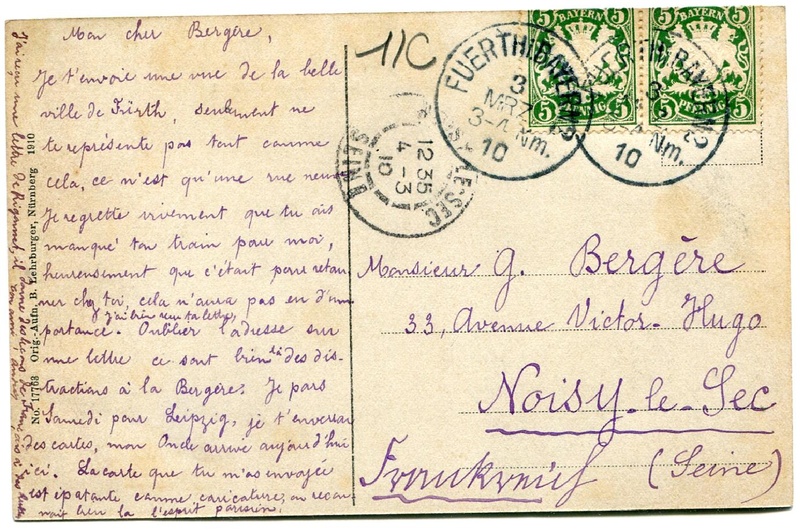 Mon cher Bergère,
Je t'envoie une vue de la belle
ville de Fürth, seulement ne
te représente pas tout comme
cela, ce n'est qu'une rue neuve
Je regrette vivement que tu ais
manqué ton train pour moi,
heureusement que c'était pour retour
ner chez toi, cela n'aura pas eu d'im
portance. Oublier l'adresse sur
J'ai bien reçu ta lettre,
une lettre ce sont bien là des dis-
tractions à la Bergère. Je pars
Samedi pour Leipzig, je t'enverrai
des cartes, mon Oncle arrive aujourd'hui
ici. La carte que tu m'as envoyée
est épatante comme caricature, on recon
nait bien là l'esprit parisien.
J'ai reçu une lettre de il donne des leçons de français à
ton ami André
No. 17763 Orig.-Aufn B. Lehrburger, Nürnberg 1910
11C
FUERTH(BAYERN)2
3
MRZ
3-4 Nm.
10
BAYERN
5 5
PFENNIG
BAYERN
5 5
PFENNIG
3
Nm.
10
LE-SEC
SEINE
12 35
4 - 3
10
Monsieur G. Bergère
33, Avenue Victor-Hugo
Noisy-le-Sec
(Seine)
Frankreich